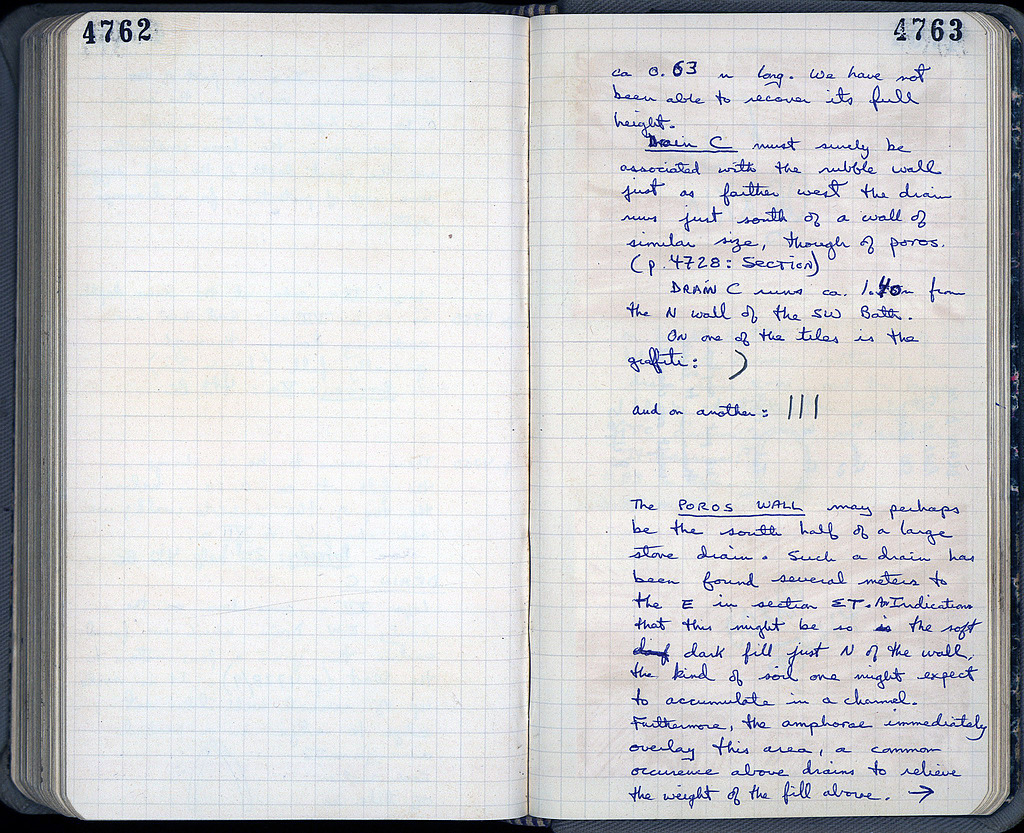 4762
4763
ca 0.63 m long. We have not
been able to recover its full
height.
Drain C must surely be
associated with the rubble wall
just as farther west the drain
runs just south of a wall of
similar size, though of poros.
(p. 4728: SECTION)
DRAIN C runs ca. 1.40m from
the N wall of the SW Bath.
On one of the tiles is the
graffiti: )
and on another: |||
The POROS WALL may perhaps
be the south half of a large
stone drain. Such a drain has
been found several meters to
the E in section ΣΤ. An Indication
that this might be so is the soft
dark fill just N of the wall,
the kind of soil one might expect
to accumulate in a channel.
Furthermore, the amphorae immediately
overlay this area, a common
occurence above drains to relieve
the weight of the fill above. →